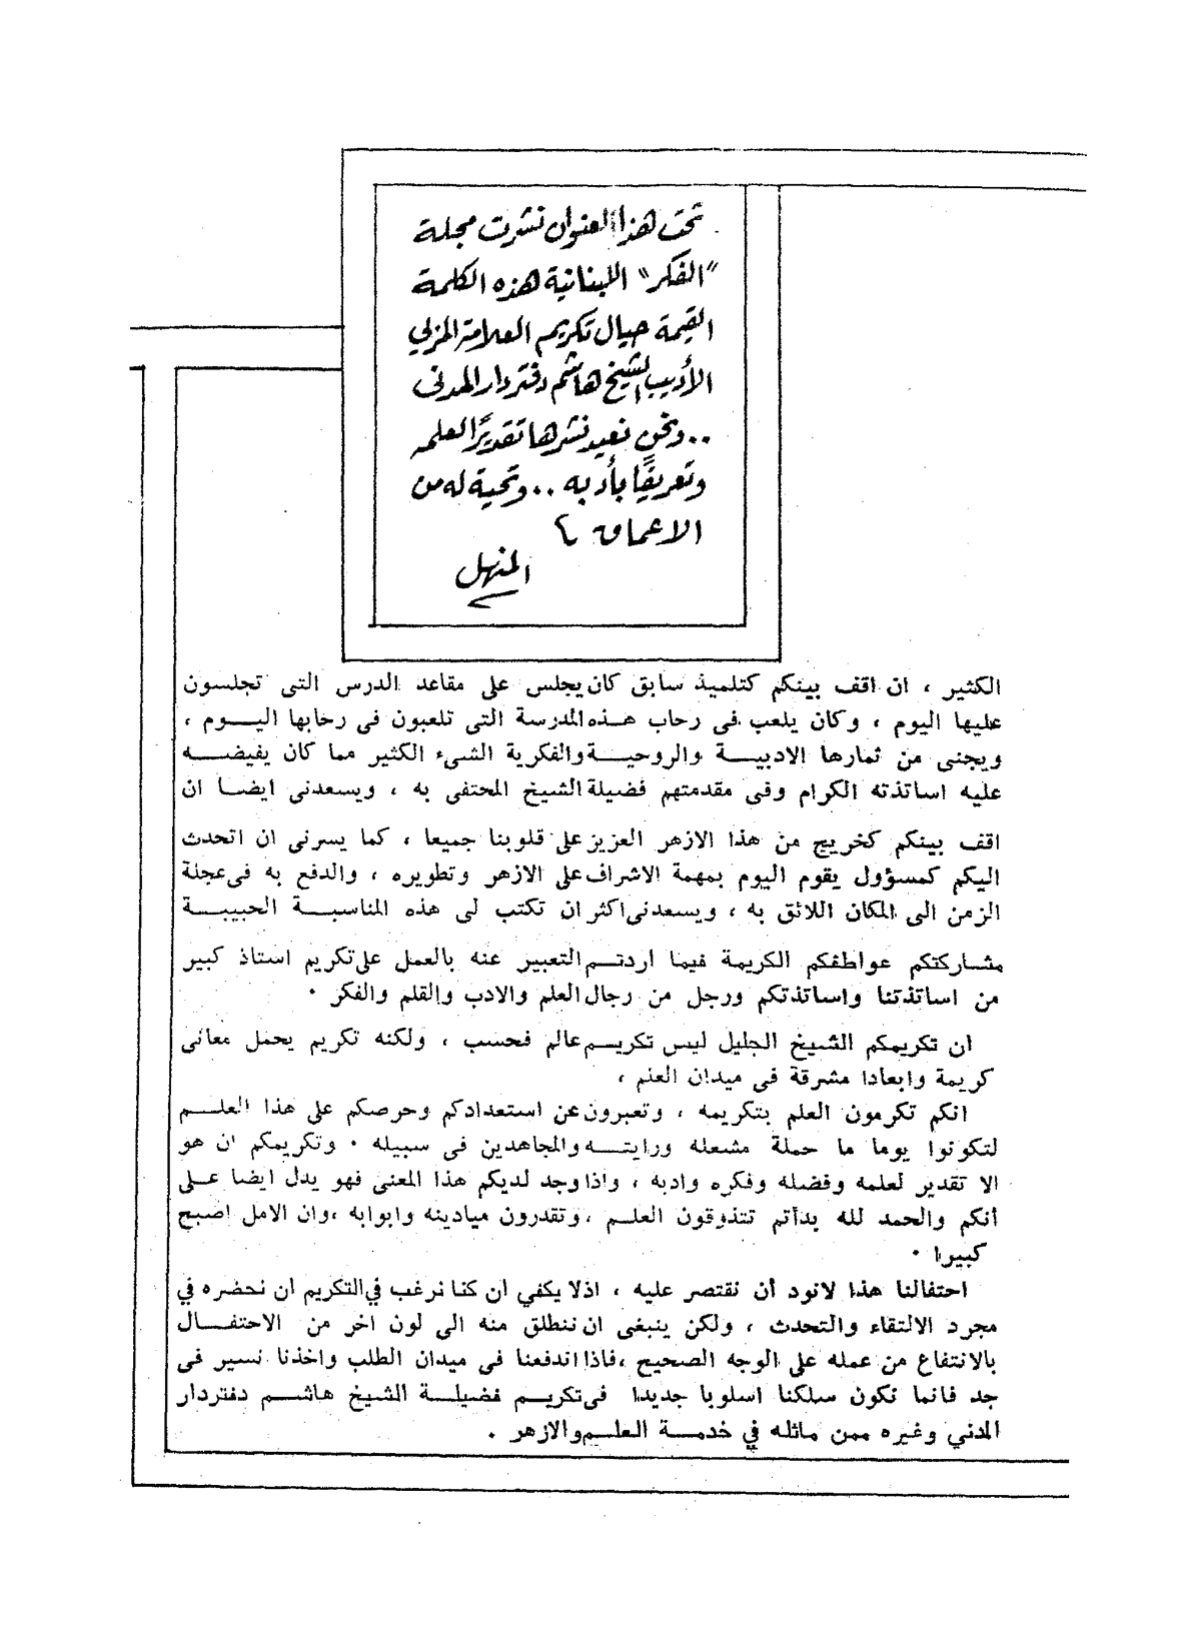 تحت هذا العنوان نشرت مجلة
"الفكر" اللبنانية هذه الكلمة
القيمة حيال تكريم العلامة المربي
الأديب الشيخ هاشم دفتردار المدنى
.. ونحن نعيد نشرها تقديرًا لعلمه
وتعريفًا بأدبه .. وتحية له من
الاعماق
المنهل
الكثير ، ان اقف بينكم كتلميذ سابق كان يجلس على مقاعد الدرس التى تجلسون
عليها اليوم ، وكان يلعب فى رحاب هذه المدرسة التى تلعبون فى رحابها اليوم ،
ويجنى من ثمارها الادبية والروحية والفكرية الشىء الكثير مما كان يفيضه
عليه اساتذته الكرام وفى مقدمتهم فضيلة الشيخ المحتفى به ، ويسعدنى ايضا ان
اقف بينكم كخريج من هذا الازهر العزيز على قلوبنا جميعا ، كما يسرنى ان اتحدث
اليكم كمسؤول يقوم اليوم بمهمة الاشراف على الازهر وتطويره ، والدفع به فى عجلة
الزمن الى المكان اللائق به ، ويسعدنى اكثر ان تكتب لى هذه المناسبة الحبيبة
مشاركتكم عواطفكم الكريمة فيما اردتم التعبير عنه بالعمل على تكريم استاذ كبير
من اساتذتنا واساتذتكم ورجل من رجال العلم والادب والقلم والفكر .
ان تكريمكم الشيخ الجليل ليس تكريم عالم فحسب ، ولكنه تكريم يحمل معانى
كريمة وابعادا مشرقة فى ميدان العلم ،
انكم تكرمون العلم بتكريمه ، وتعبرون عن استعدادكم وحرصكم على هذا العلم
لتكونوا يوما ما حملة مشعله ورايته والمجاهدين فى سبيله . وتكريمكم ان هو
الا تقدير لعلمه وفضله وفكره وادبه ، واذا وجد لديكم هذا المعنى فهو يدل ايضا على
أنكم والحمد لله بدأتم تتذوقون العلم ، وتقدرون ميادينه وابوابه ، وان الامل اصبح
كبيرا .
احتفالنا هذا لانود أن نقتصر عليه ، اذلا يكفي ان كنا نرغب في التكريم ان نحضره في
مجرد الالتقاء والتحدث ، ولكن ينبغى ان ننطلق منه الى لون اخر من الاحتفال
بالانتفاع من عمله على الوجه الصحيح ، فاذا اندفعنا فى ميدان الطلب واخذنا نسير فى
جد فانما نكون سلكنا اسلوبا جديدا فى تكريم فضيلة الشيخ هاشم دفتردار
المدني وغيره ممن ماثله في خدمة العلم والازهر .